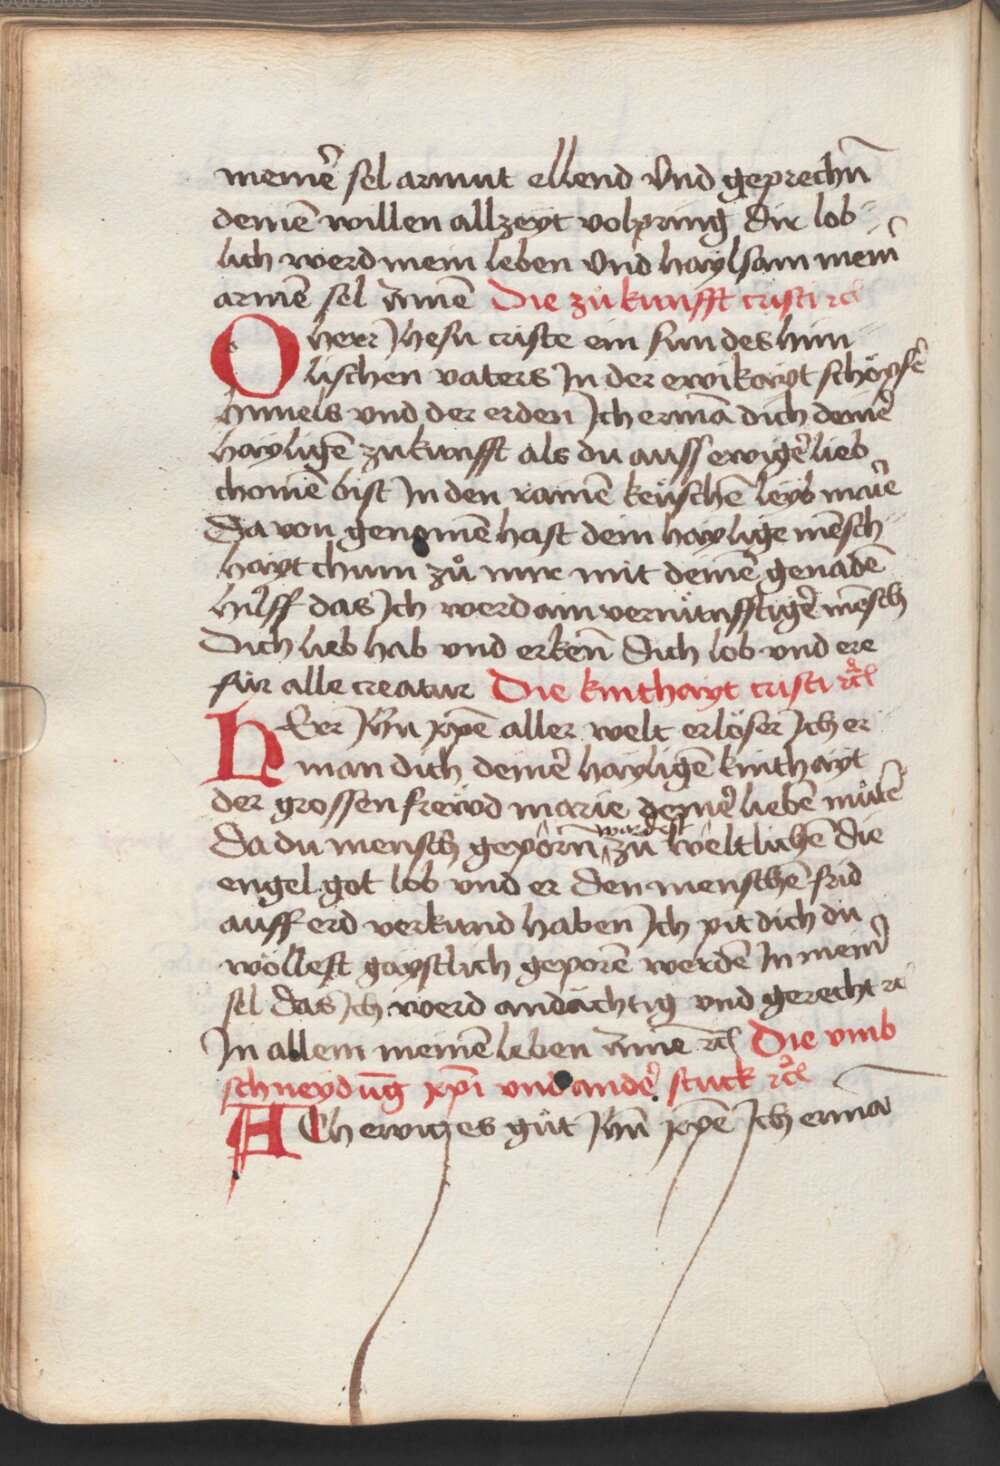 meinē sel armut ellend Vnd geprechn̄
deinē willen allzeyt volpring dir lob
lich werd mein leben Vnd haylsam mein̄
armē sel Amē Die zůkunfft cristi rc̄
O herr Jhesu criste ein sun des him
lischen vaters In der ewikayt schöpfē
himels vnd der erden Ich ermā dich deinē
hayligē zukunfft als du auss ewigē lieb
chomē bist In den rainē keüschē leyb marē
Da von genomē hast dein haylige mēsch
hayt chum zů mir mit deinē genadē
hilff das Ich werd ain vernünfftigē mēsch
Dich lieb hab vnd erkenn̄ dich lob vnd ere
für alle creatur Die kinthayt cristi rc̄
HErr Jhū xp̄e aller welt erlöser Ich er
man dich deinē hayligē kinthayt
der grossen frewd marie deinē liebē můtē
Da du mensch geporn̄ wardest zu weltlichē die
engel got lob vnd er den menschē frid
auff erd verkund haben Ich pit dich du
wöllest gaystlich geporē werdē In mein̄
sel das Ich werd andächtig vnd gerecht rc
In allem meinē leben Amē rc̄ Die vmb
schneydūg xp̄i vnd andē stuck rc̄
ACh ewiges gůt Jhū xp̄e Ich ermā